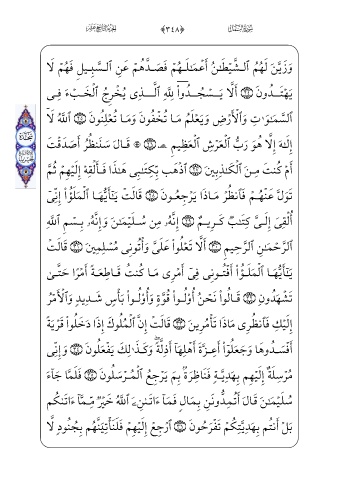 سورة النمل ﴿٣٤٨﴾ الجزء التاسع عشر
وَزَيَّنَ لَهُمُ ٱلشَّيْطَٰنُ أَعْمَٰلَهُمْ فَصَدَّهُمْ عَنِ ٱلسَّبِيلِ فَهُمْ لَا
يَهْتَدُونَ ۝ أَلَّا يَسْجُدُوا۟ لِلَّهِ ٱلَّذِى يُخْرِجُ ٱلْخَبْءَ فِى
ٱلسَّمَٰوَٰتِ وَٱلْأَرْضِ وَيَعْلَمُ مَا تُخْفُونَ وَمَا تُعْلِنُونَ ۝ ٱللَّهُ لَا
إِلَٰهَ إِلَّا هُوَ رَبُّ ٱلْعَرْشِ ٱلْعَظِيمِ ۩ ۝ ۞ قَالَ سَنَنظُرُ أَصَدَقْتَ
أَمْ كُنتَ مِنَ ٱلْكَٰذِبِينَ ۝ ٱذْهَب بِّكِتَٰبِى هَٰذَا فَأَلْقِهْ إِلَيْهِمْ ثُمَّ
تَوَلَّ عَنْهُمْ فَٱنظُرْ مَاذَا يَرْجِعُونَ ۝ قَالَتْ يَٰٓأَيُّهَا ٱلْمَلَؤُا۟ إِنِّىٓ
أُلْقِىَ إِلَىَّ كِتَٰبٌ كَرِيمٌ ۝ إِنَّهُۥ مِن سُلَيْمَٰنَ وَإِنَّهُۥ بِسْمِ ٱللَّهِ
ٱلرَّحْمَٰنِ ٱلرَّحِيمِ ۝ أَلَّا تَعْلُوا۟ عَلَىَّ وَأْتُونِى مُسْلِمِينَ ۝ قَالَتْ
يَٰٓأَيُّهَا ٱلْمَلَؤُا۟ أَفْتُونِى فِىٓ أَمْرِى مَا كُنتُ قَاطِعَةً أَمْرًا حَتَّىٰ
تَشْهَدُونِ ۝ قَالُوا۟ نَحْنُ أُو۟لُوا۟ قُوَّةٍ وَأُو۟لُوا۟ بَأْسٍ شَدِيدٍ وَٱلْأَمْرُ
إِلَيْكِ فَٱنظُرِى مَاذَا تَأْمُرِينَ ۝ قَالَتْ إِنَّ ٱلْمُلُوكَ إِذَا دَخَلُوا۟ قَرْيَةً
أَفْسَدُوهَا وَجَعَلُوٓا۟ أَعِزَّةَ أَهْلِهَآ أَذِلَّةً ۖ وَكَذَٰلِكَ يَفْعَلُونَ ۝ وَإِنِّى
مُرْسِلَةٌ إِلَيْهِم بِهَدِيَّةٍ فَنَاظِرَةٌۢ بِمَ يَرْجِعُ ٱلْمُرْسَلُونَ ۝ فَلَمَّا جَآءَ
سُلَيْمَٰنَ قَالَ أَتُمِدُّونَنِ بِمَالٍ فَمَآ ءَاتَىٰنِۦَ ٱللَّهُ خَيْرٌ مِّمَّآ ءَاتَىٰكُم
بَلْ أَنتُم بِهَدِيَّتِكُمْ تَفْرَحُونَ ۝ ٱرْجِعْ إِلَيْهِمْ فَلَنَأْتِيَنَّهُم بِجُنُودٍ لَّا